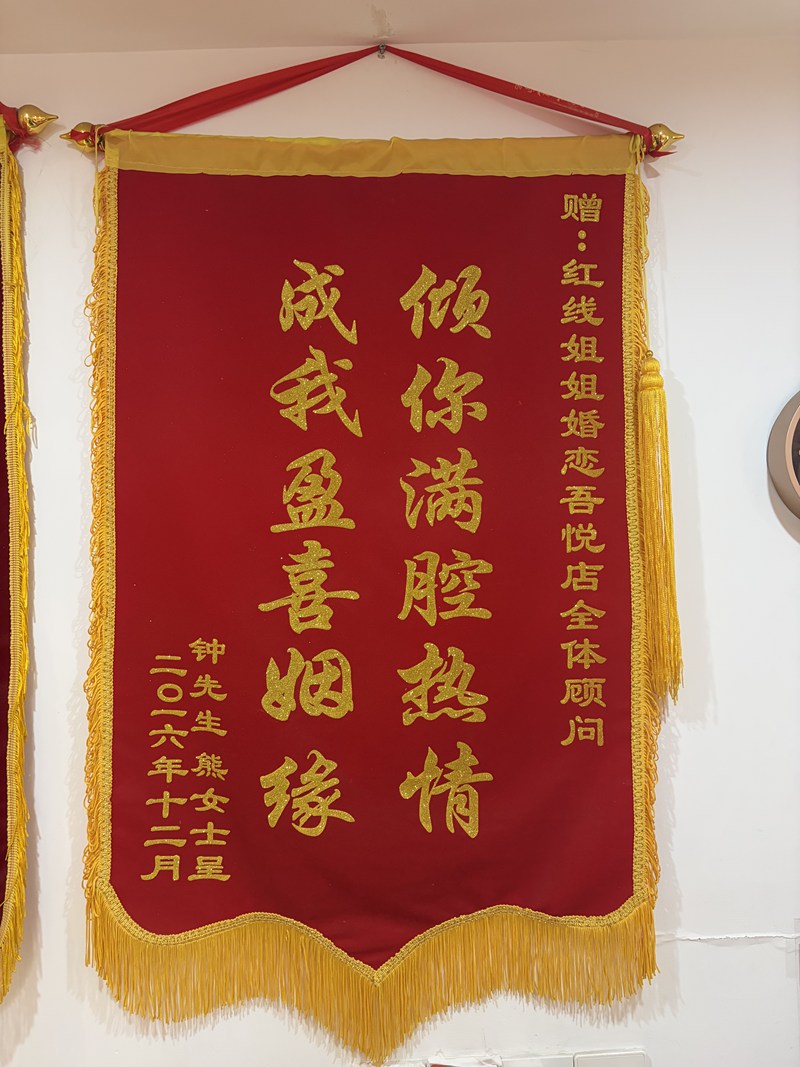 赠：红线姐姐婚恋吾悦店全体顾问
倾你满腔热情
成我盈喜姻缘
钟先生 熊女士呈
二〇一六年十二月